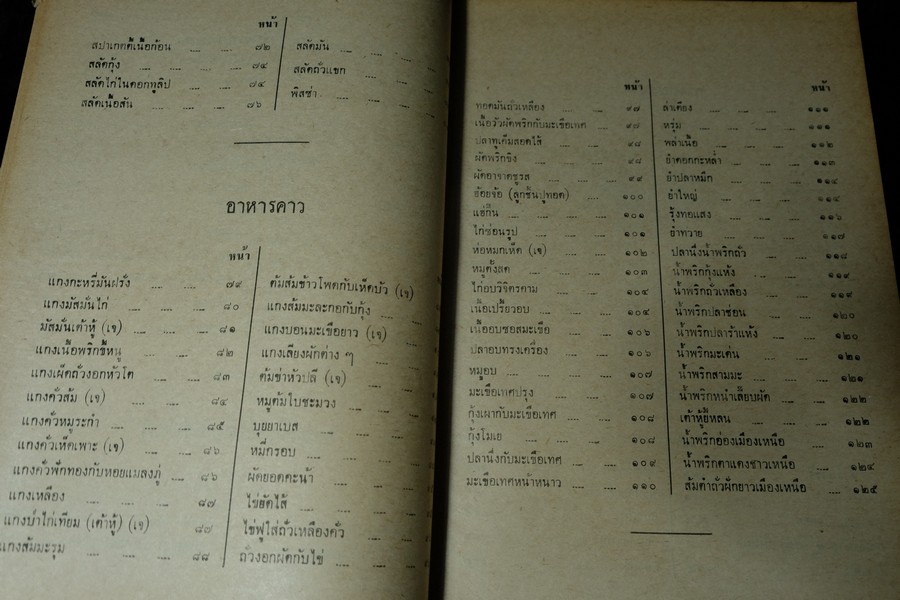 หน้า
สปาเกตตี้เนื้อก้อน .... .... ๗๒
สลัดกุ้ง .... .... ๗๔
สลัดไก่ในดอกทูลิป .... ๗๔
สลัดเนื้อสัน .... .... ๗๖
สลัดมัน .... ....
สลัดถั่วแขก ....
พิสซ่า .... ....
อาหารคาว
หน้า
แกงกะหรี่มันฝรั่ง .... .... ๗๙
แกงมัสมั่นไก่ .... .... ๘๐
มัสมั่นเต้าหู้ (เจ) .... .... ๘๑
แกงเนื้อพริกขี้หนู .... .... ๘๒
แกงเผ็ดถั่วงอกหัวโต .... ๘๓
แกงคั่วส้ม (เจ) .... .... ๘๔
แกงคั่วหมูระกำ .... .... ๘๕
แกงคั่วเห็ดเพาะ (เจ) .... ๘๖
แกงคั่วฟักทองกับหอยแมลงภู่ .... ๘๖
แกงเหลือง .... .... ๘๗
แกงป่าไก่เทียม (เต้าหู้) (เจ) .... ๘๗
แกงส้มมะรุม .... .... ๘๘
ต้มส้มข้าวโพดกับเห็ดบัว (เจ)
แกงส้มมะละกอกับกุ้ง ....
แกงบอนมะเขือยาว (เจ)
แกงเลียงผักต่าง ๆ ....
ต้มข่าหัวปลี (เจ) ....
หมูต้มใบชะมวง ....
บุยยาเบส .... ....
หมี่กรอบ .... ....
ผัดยอดคะน้า ....
ไข่ยัดไส้ .... ....
ไข่ฟูใส่ถั่วเหลืองคั่ว ....
ถั่วงอกผัดกับไข่ .... ....
หน้า
ทอดมันถั่วเหลือง .... .... ๙๗
เนื้อวัวผัดพริกกับมะเขือเทศ .... ๙๘
ปลาทูเค็มสอดไส้ .... .... ๙๘
ผัดพริกขิง .... .... ๙๘
ผัดอาจาดชูรส .... .... ๙๙
ฮ่อยจ้อ (ลูกชิ้นปูทอด) .... ๑๐๐
แฮ่กึ๊น .... .... ๑๐๑
ไก่ซ่อนรูป .... .... ๑๐๑
ห่อหมกเห็ด (เจ) .... .... ๑๐๒
หมูตั้งสด .... .... ๑๐๓
ไก่อบวิจิตรตาม .... .... ๑๐๔
เนื้อเปรี้ยวอบ .... .... ๑๐๕
เนื้ออบซอสมะเขือ .... .... ๑๐๖
ปลาอบทรงเครื่อง .... .... ๑๐๖
หมูอบ .... .... ๑๐๗
มะเขือเทศปรุง .... .... ๑๐๗
กุ้งเผากับมะเขือเทศ .... ๑๐๘
กุ้งโมเย .... .... ๑๐๘
ปลานึ่งกับมะเขือเทศ .... ๑๐๙
มะเขือเทศหน้าหนาว .... ๑๑๐
หน้า
ล่าเตียง .... .... ๑๑๑
หรุ่ม .... .... ๑๑๑
พล่าเนื้อ .... .... ๑๑๒
ยำดอกกะหล่ำ .... .... ๑๑๓
ยำปลาหมึก .... .... ๑๑๔
ยำใหญ่ .... .... ๑๑๔
รุ้งทอแสง .... .... ๑๑๖
ยำทวาย .... .... ๑๑๗
ปลานึ่งน้ำพริกถั่ว .... .... ๑๑๘
น้ำพริกกุ้งแห้ง .... .... ๑๑๙
น้ำพริกถั่วเหลือง .... .... ๑๑๙
น้ำพริกปลาช่อน .... .... ๑๒๐
น้ำพริกปลาร้าแห้ง .... .... ๑๒๐
น้ำพริกมะเด่น .... .... ๑๒๑
น้ำพริกสามมะ .... .... ๑๒๑
น้ำพริกหน้าเลี้ยบผัด .... .... ๑๒๒
เต้าหู้ยี้หลน .... .... ๑๒๒
น้ำพริกอ่องเมืองเหนือ .... ๑๒๓
น้ำพริกตาแดงชาวเหนือ .... ๑๒๔
ส้มตำถั่วฝักยาวเมืองเหนือ .... ๑๒๕